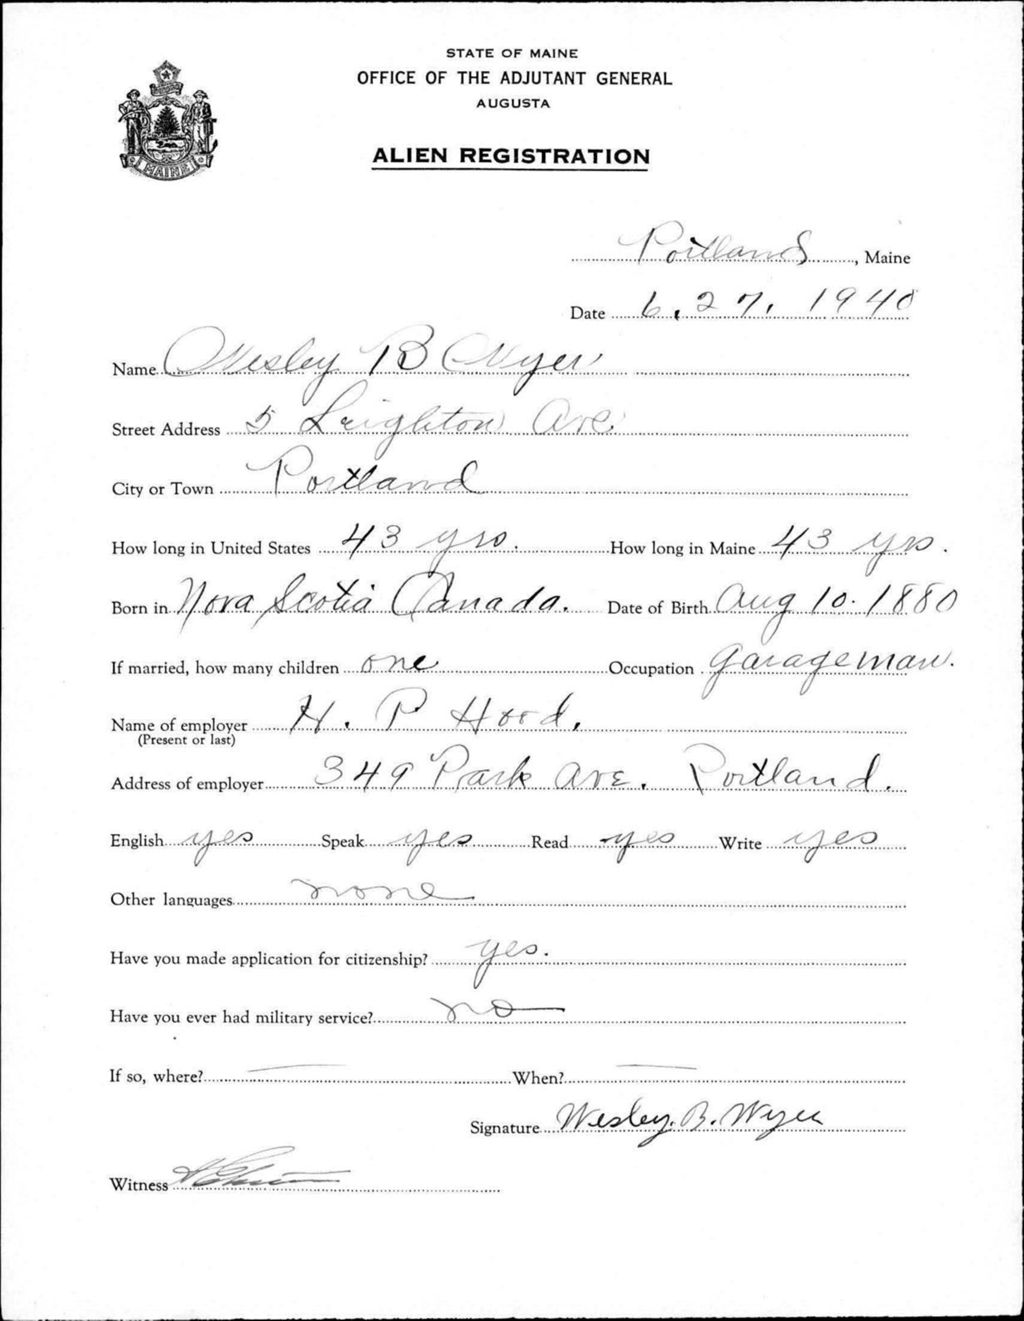 STATE OF MAINE
OFFICE OF THE ADJUTANT GENERAL
AUGUSTA
MAINE
ALIEN REGISTRATION
Portland, Maine
Date 6. 27. 1940
Name Wesley B Wyer
Street Address 5 Leighton Ave.
City or Town Portland
How long in United States 43 yrs. How long in Maine 43 yrs.
Born in Nova Scotia Canada. Date of Birth Aug 10. 1880
If married, how many children one Occupation Garageman.
Name of employer H. P Hood.
(Present or last)
Address of employer 349 Park Ave. Portland.
English yes Speak yes Read yes Write yes
Other languages none
Have you made application for citizenship? yes.
Have you ever had military service? no
If so, where? — When? —
Signature Wesley. B. Wyer
Witness